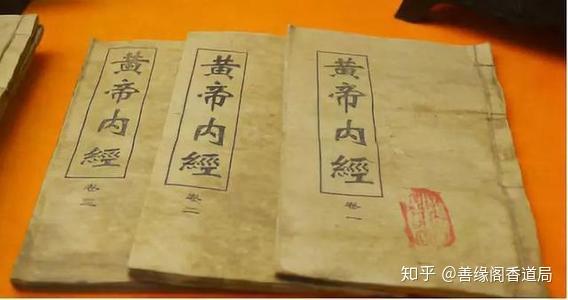 黃帝内經
卷三
黃帝内經
卷二
黃帝内經
卷一
知乎 @善缘阁香道局